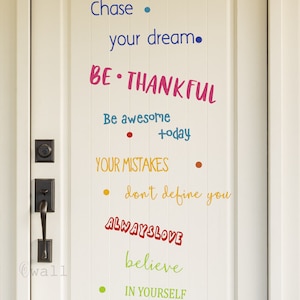 Chase
your dream
BE • THANKFUL
Be awesome
today
YOUR MISTAKES
don't define you
ALWAYSLOVE
believe
IN YOURSELF
wall